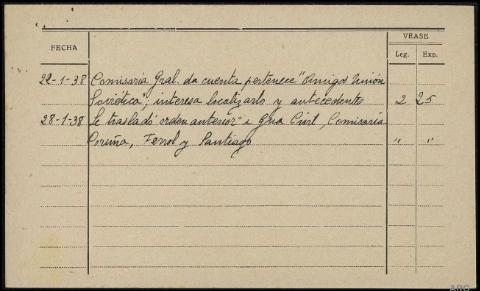 VEASE
FECHA
Leg. Exp.
22-1-38 Comisaría Gral. da cuenta pertenece "Amigos Unión
Soviética"; interesa localizarlo y antecedentes 2 25
28-1-38 Se trasladó orden anterior a Gua Civil, Comisaría
Coruña, Ferrol y Santiago " "